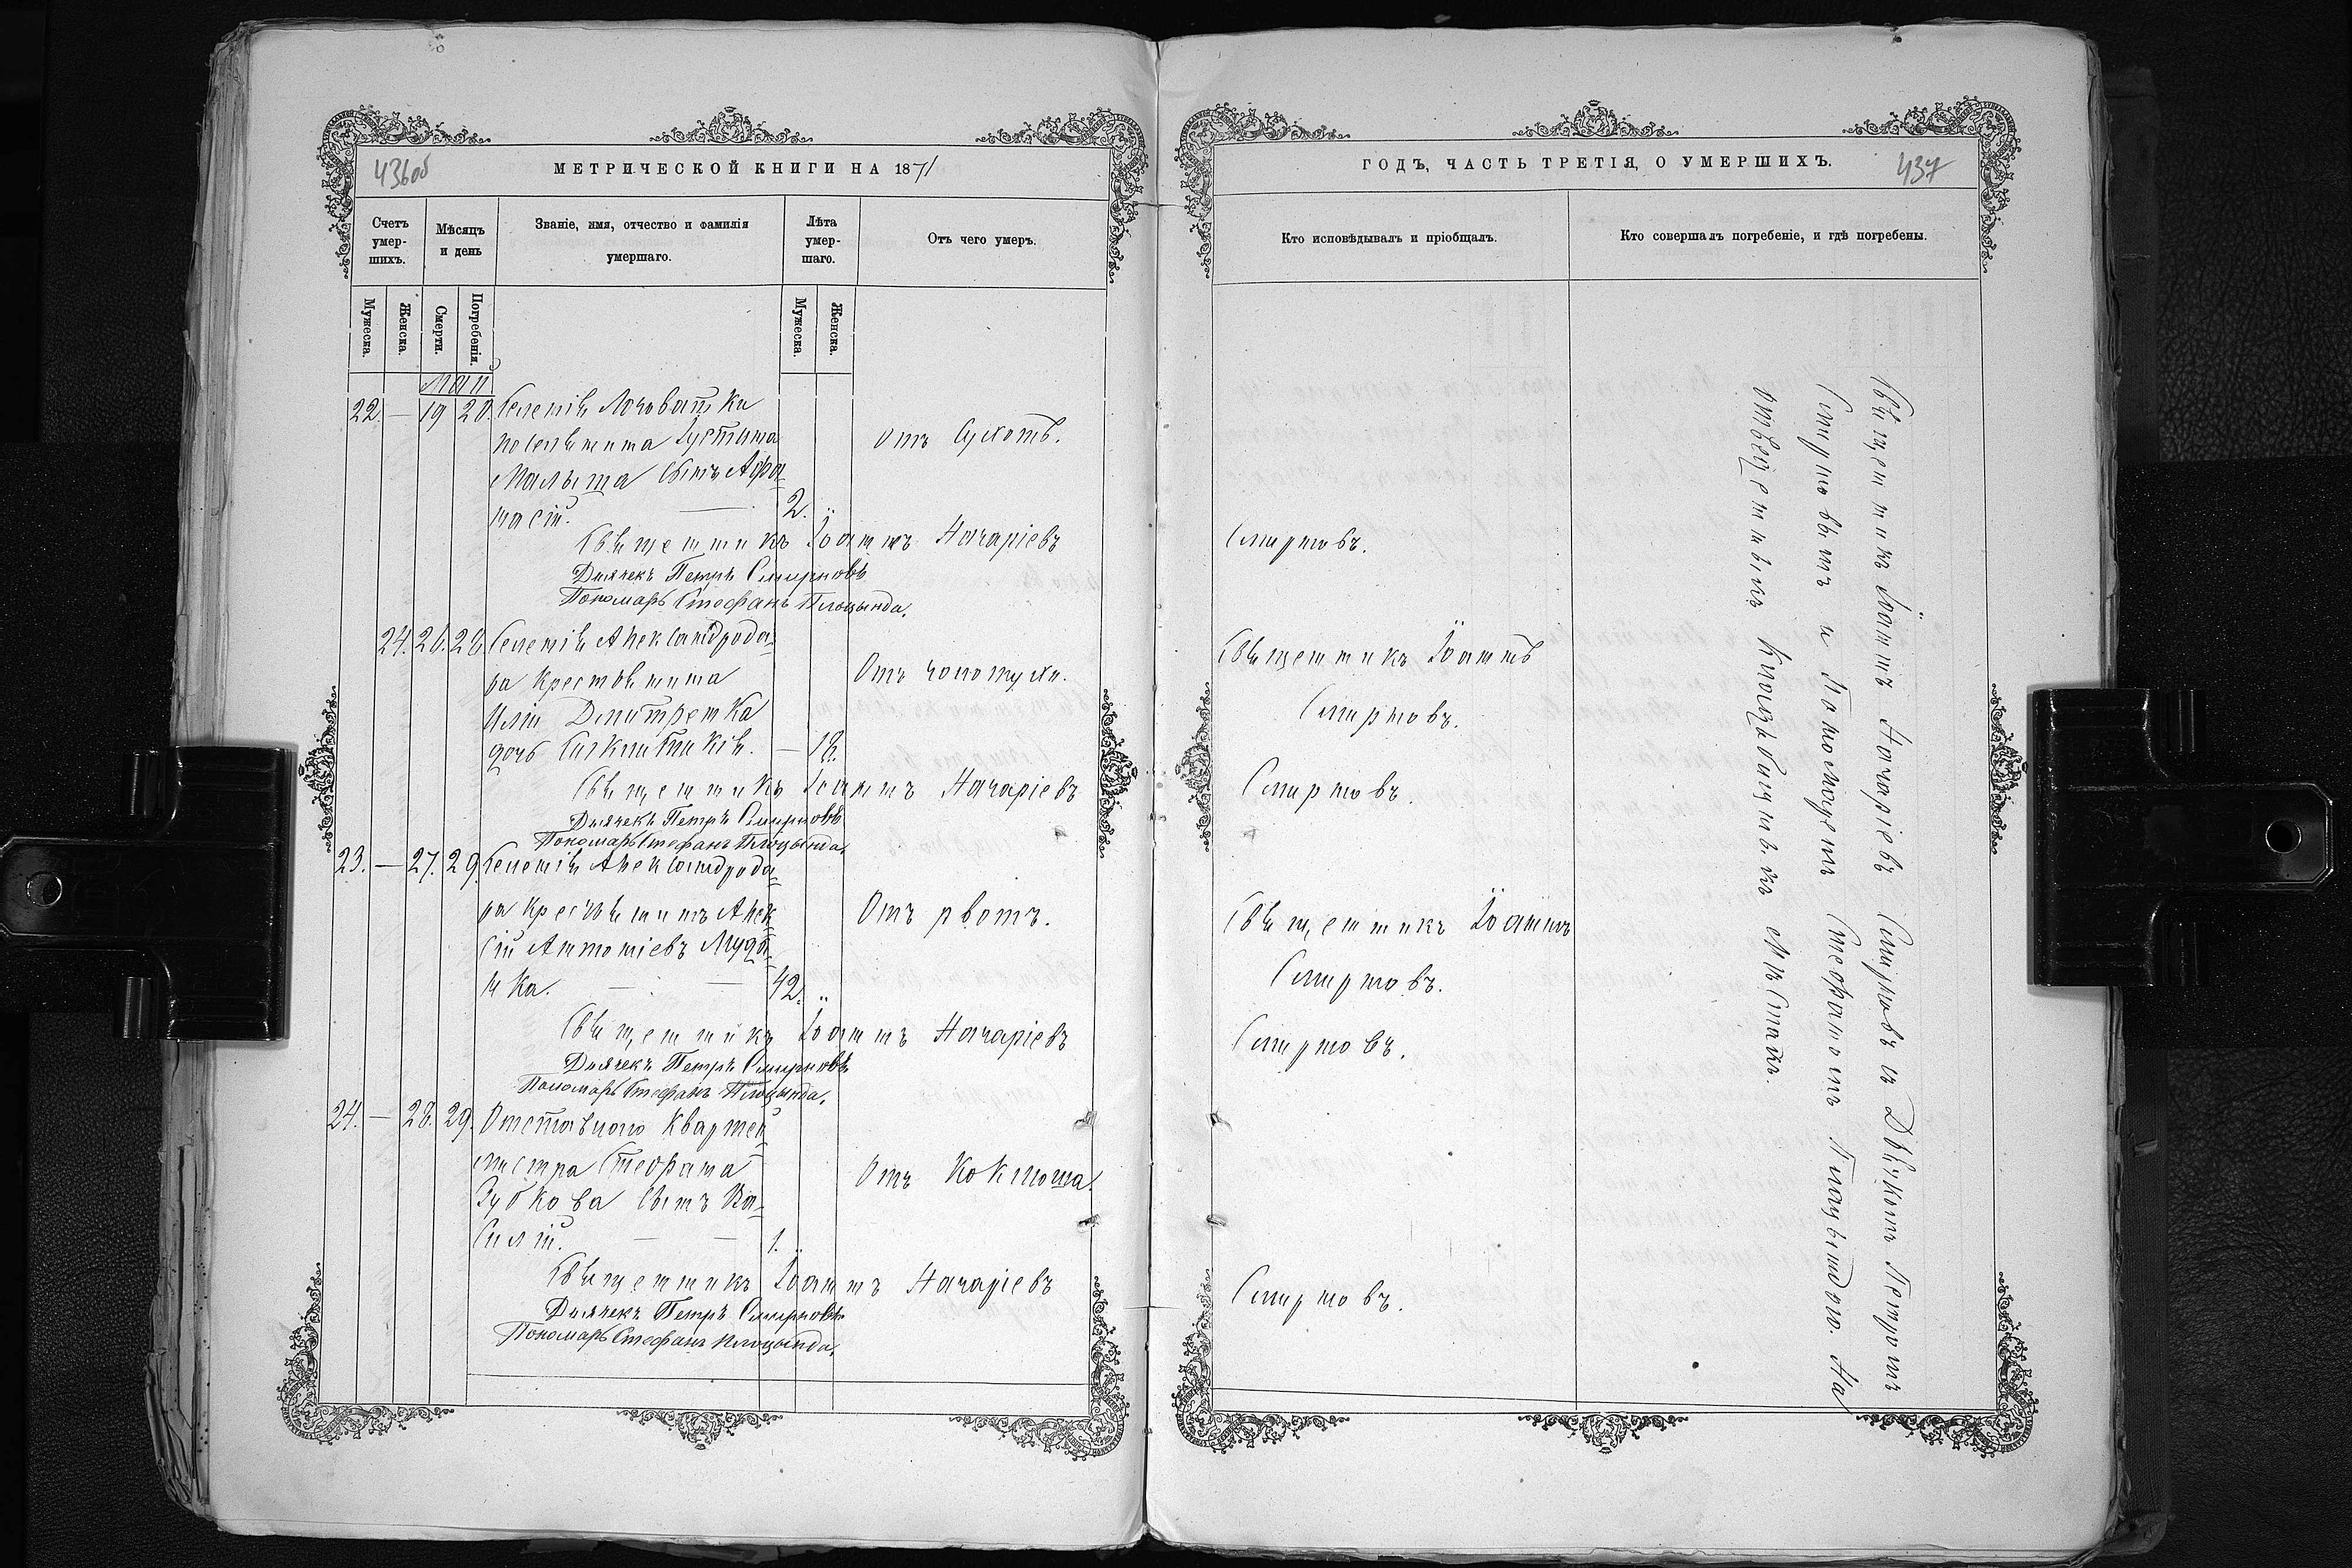 436об
МЕТРИЧЕСКОЙ КНИГИ НА 1871
Счетъ умер-шихъ.
Мѣсяцъ и день
Званіе, имя, отчество и фамилія умершаго.
Лѣта умер-шаго.
Отъ чего умеръ.
Мужеска.
Женска.
Смерти.
Погребенія.
Мужеска.
Женска.
Май
22. — 19 20. Селенія Лозоватки
поселянина Іустина
Малыша сынъ Афа-
насій. — 2. "
Отъ Сухотъ.
Священникъ Іоаннъ Назаріевъ
Дьячекъ Петръ Смирновъ
Пономарь Стефанъ Плоцында.
24. 26. 28. Селенія Александрода-
ра Крестьянина
Иліи Дмитренка
дочь. — 18.
Отъ чопотухи.
Священникъ Іоаннъ Назаріевъ
Дьячекъ Петръ Смирновъ
Пономарь Стефанъ Плоцында.
23. — 27. 29. Селенія Александрода-
ра Крестьянинъ Алек-
сій Антоніевъ
ка. — — 42. "
Отъ рвотъ.
Священникъ Іоаннъ Назаріевъ
Дьячекъ Петръ Смирновъ
Пономарь Стефанъ Плоцында.
24. — 28. 29. Отставного Квартей-
мистра Стефана
Зубкова сынъ Ва-
силій. — — 1. "
Отъ Коклюша.
Священникъ Іоаннъ Назаріевъ
Дьячекъ Петръ Смирновъ
Пономарь Стефанъ Плоцында.
ГОДЪ, ЧАСТЬ ТРЕТІЯ, О УМЕРШИХЪ.
437
Кто исповѣдывалъ и пріобщалъ.
Кто совершалъ погребеніе, и гдѣ погребены.
Смирновъ.
Священникъ Іоаннъ
Смирновъ.
Смирновъ.
Священникъ Іоаннъ
Смирновъ.
Смирновъ.
Смирновъ.
Священникъ Іоаннъ Назаріевъ Смирновъ съ Дьячкомъ Петромъ
Смирновымъ и Пономаремъ Стефаномъ Плоцындою. На
отведенныхъ Кладбищныхъ Мѣстахъ.